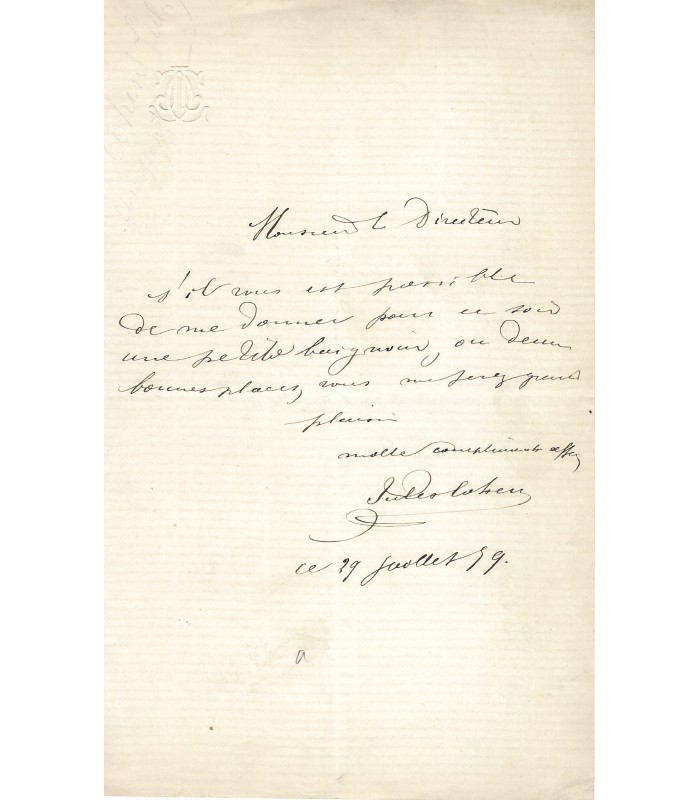 Monsieur le Directeur
s'il vous est possible
de me donner pour ce soir
une petite baignoir, ou deux
bonnes places, vous me ferez grand
plaisir
mille compliments
Jules Cohen
ce 29 juillet 79.
a